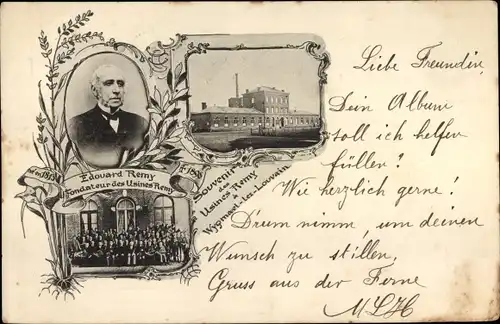 Édouard Remy
Né en 1813
Fondateur des Usines Remy
Souvenir
des
Usines Remy
à
Wygmael-lez-Louvain
Liebe Freundin,
Dein Album
soll ich helfen
füllen?
Wie herzlich gerne!
D'rum nimm, um deinen
Wunsch zu stillen,
Gruss aus der Ferne